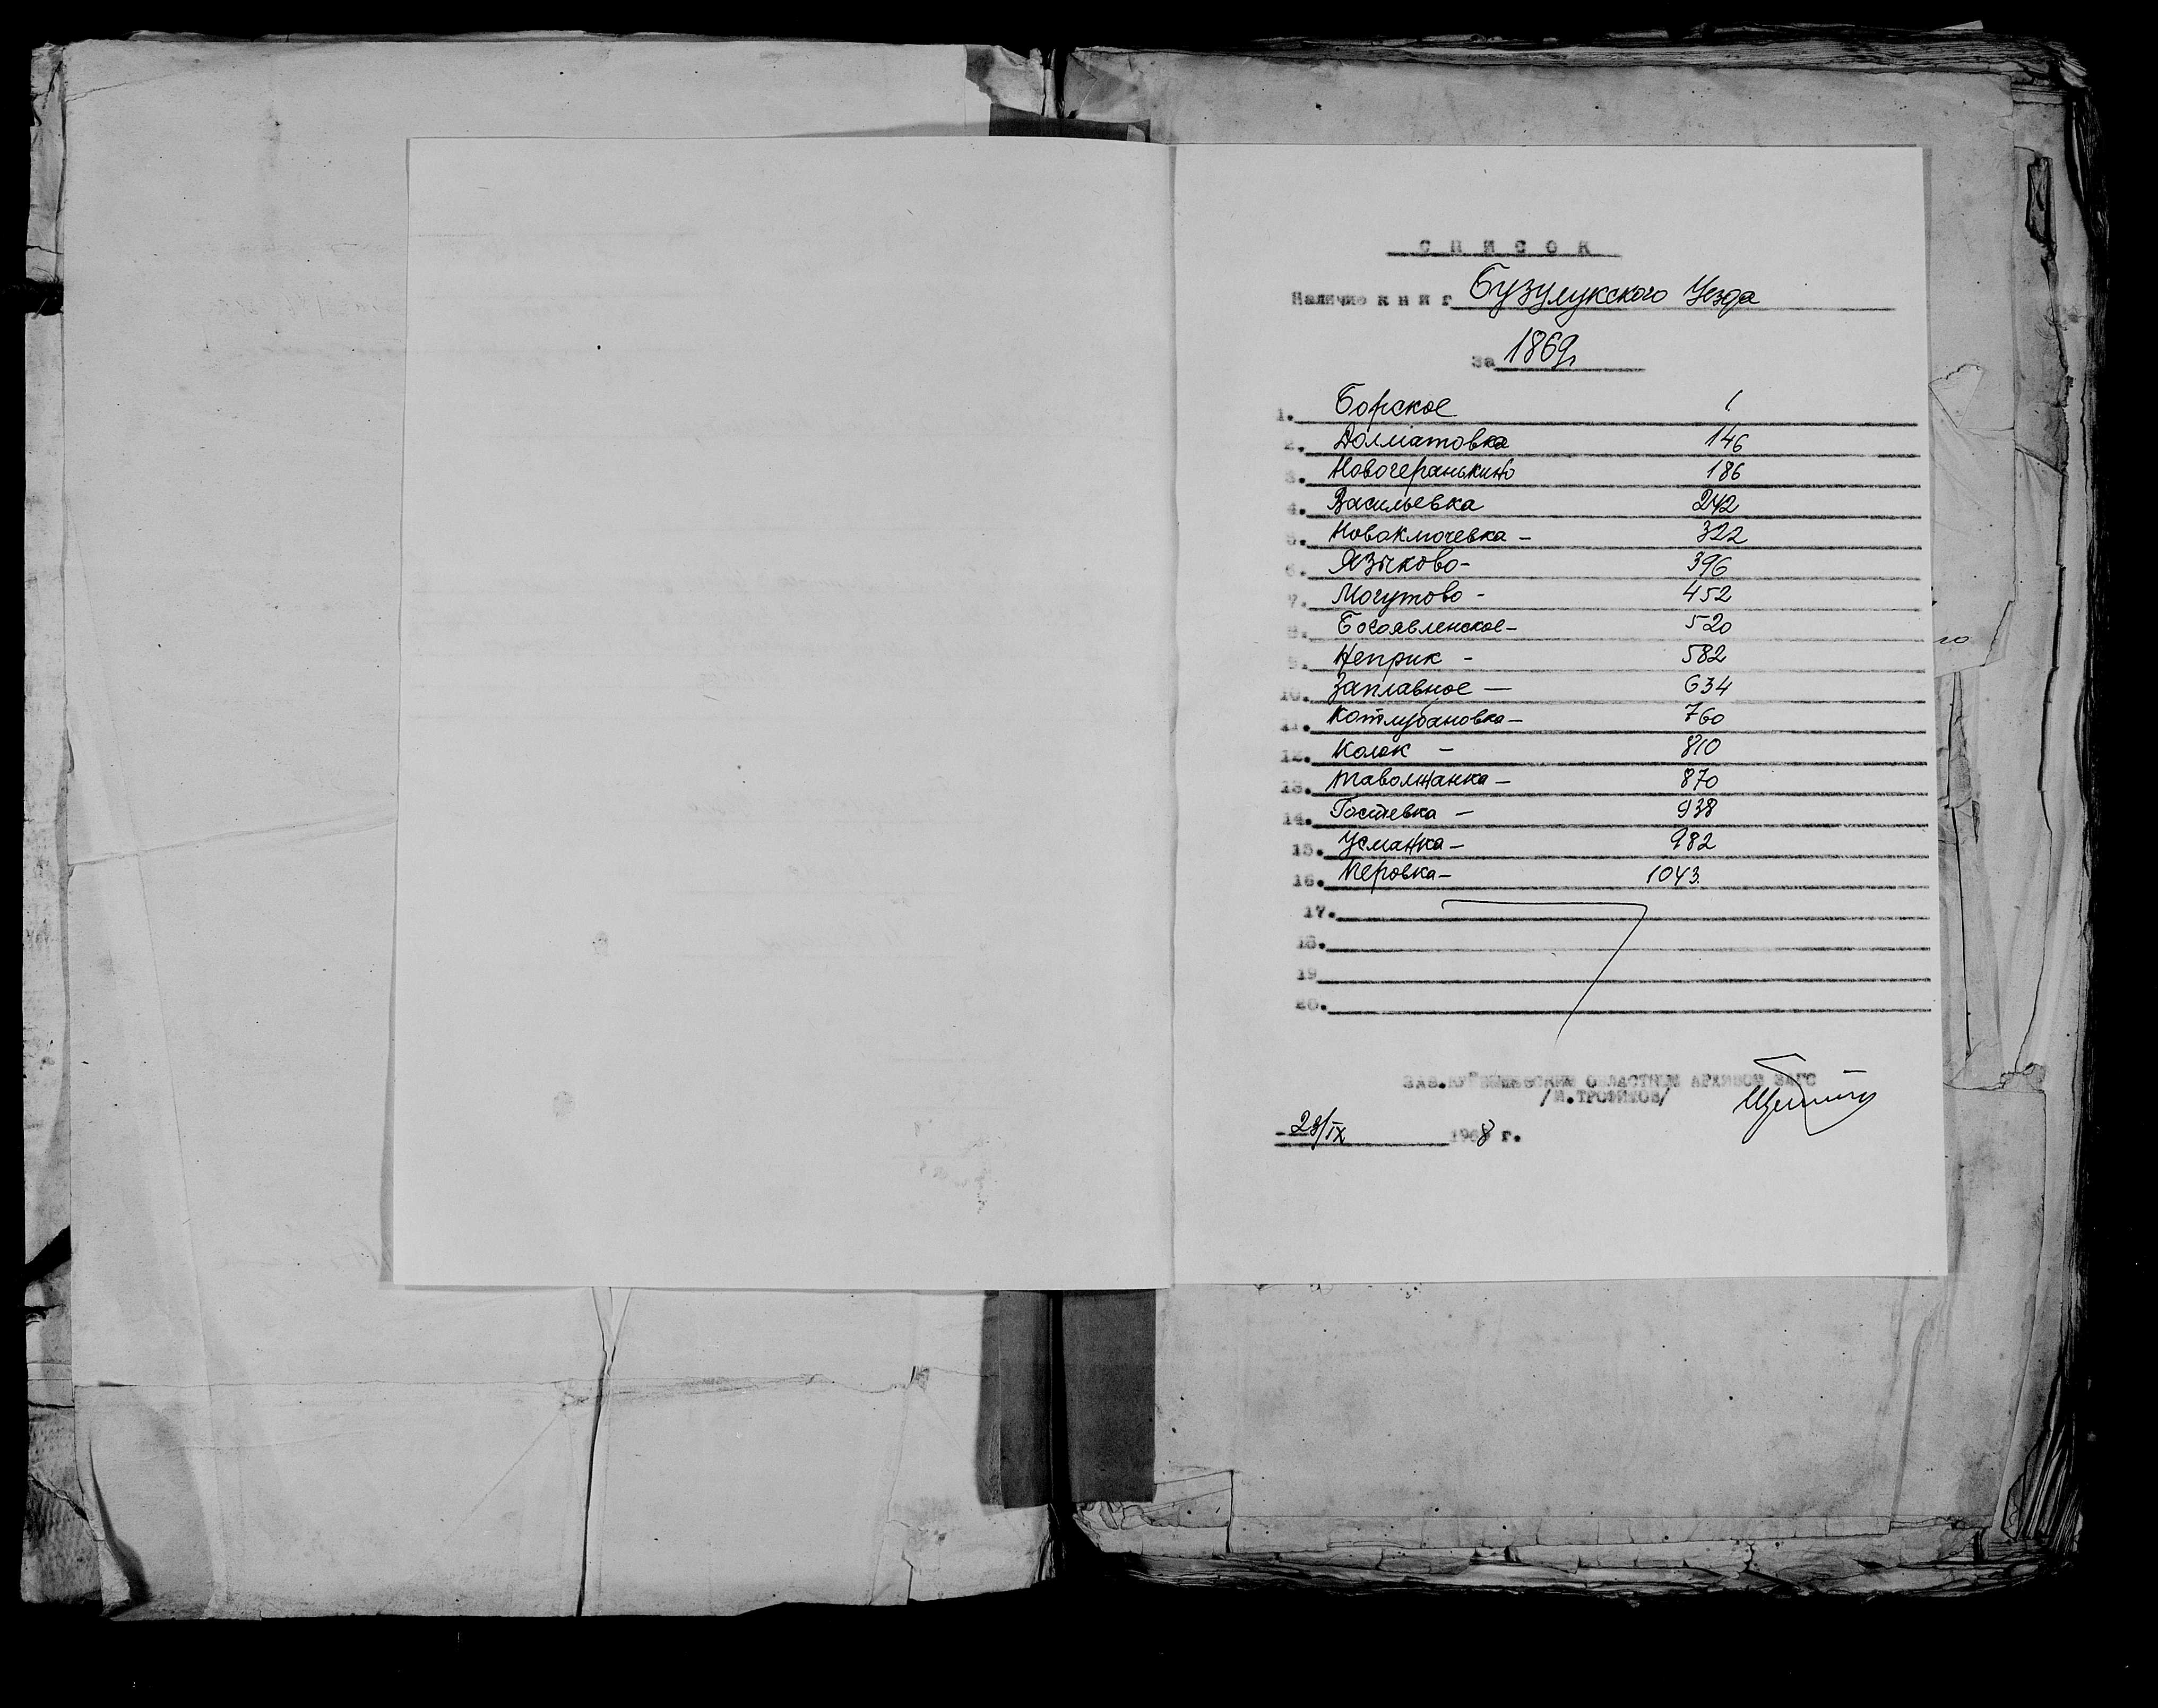 СПИСОК
Наличие книг Бузулукского Уезда
за 1869г.
1. Борское 1.
2. Долматовка 146
3. Новогеранькино 186
4. Васильевка 242
5. Новоключевка - 322
6. Языково - 396
7. Могутово - 452
8. Богоявленское - 520
9. Неприк - 582
10. Заплавное - 634
11. Котлубановка - 760
12. Колок - 810
13. Таволжанка - 870
14. Гостевка - 938
15. Усманка - 982
16. Перовка - 1043.
17.
18.
19
20.
ЗАВ.КУЙБЫШЕВСКИМ ОБЛАСТНЫМ АРХИВОМ ЗАГС
/М.ТРОФИМОВ/
28/IX 1968 г.